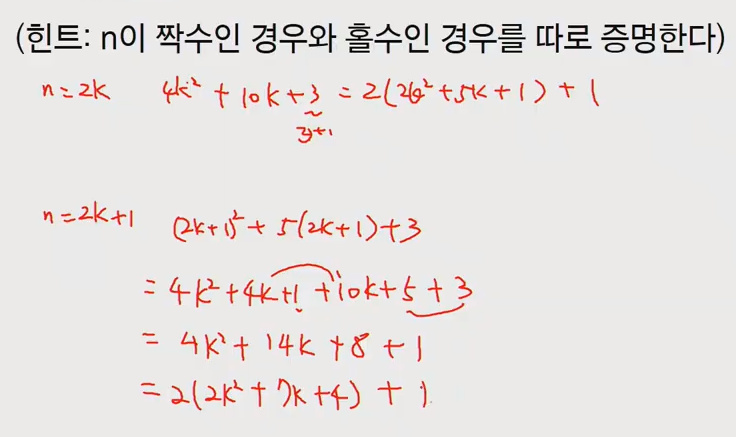 (힌트: n이 짝수인 경우와 홀수인 경우를 따로 증명한다)
n=2k 4k²+10k+3=2(2k²+5k+1)+1
2+1
n=2k+1 (2k+1)²+5(2k+1)+3
=4k²+4k+1+10k+5+3
=4k²+14k+8+1
=2(2k²+7k+4)+1